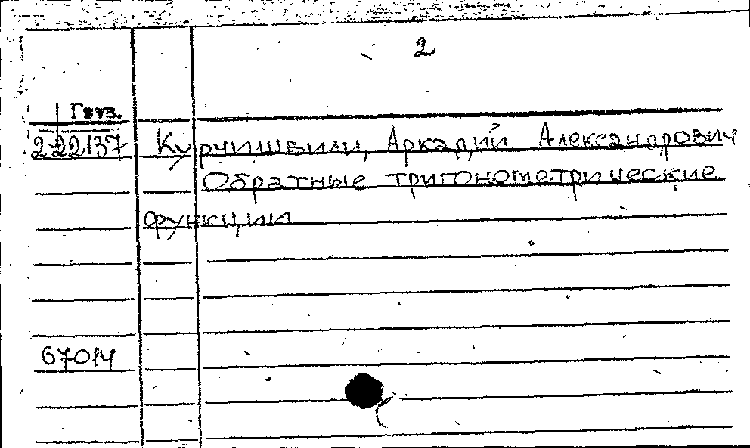 2
Груз.
2-22137 Курчишвили, Аркадий Александрович
Обратные тригонометрические
функции
67014